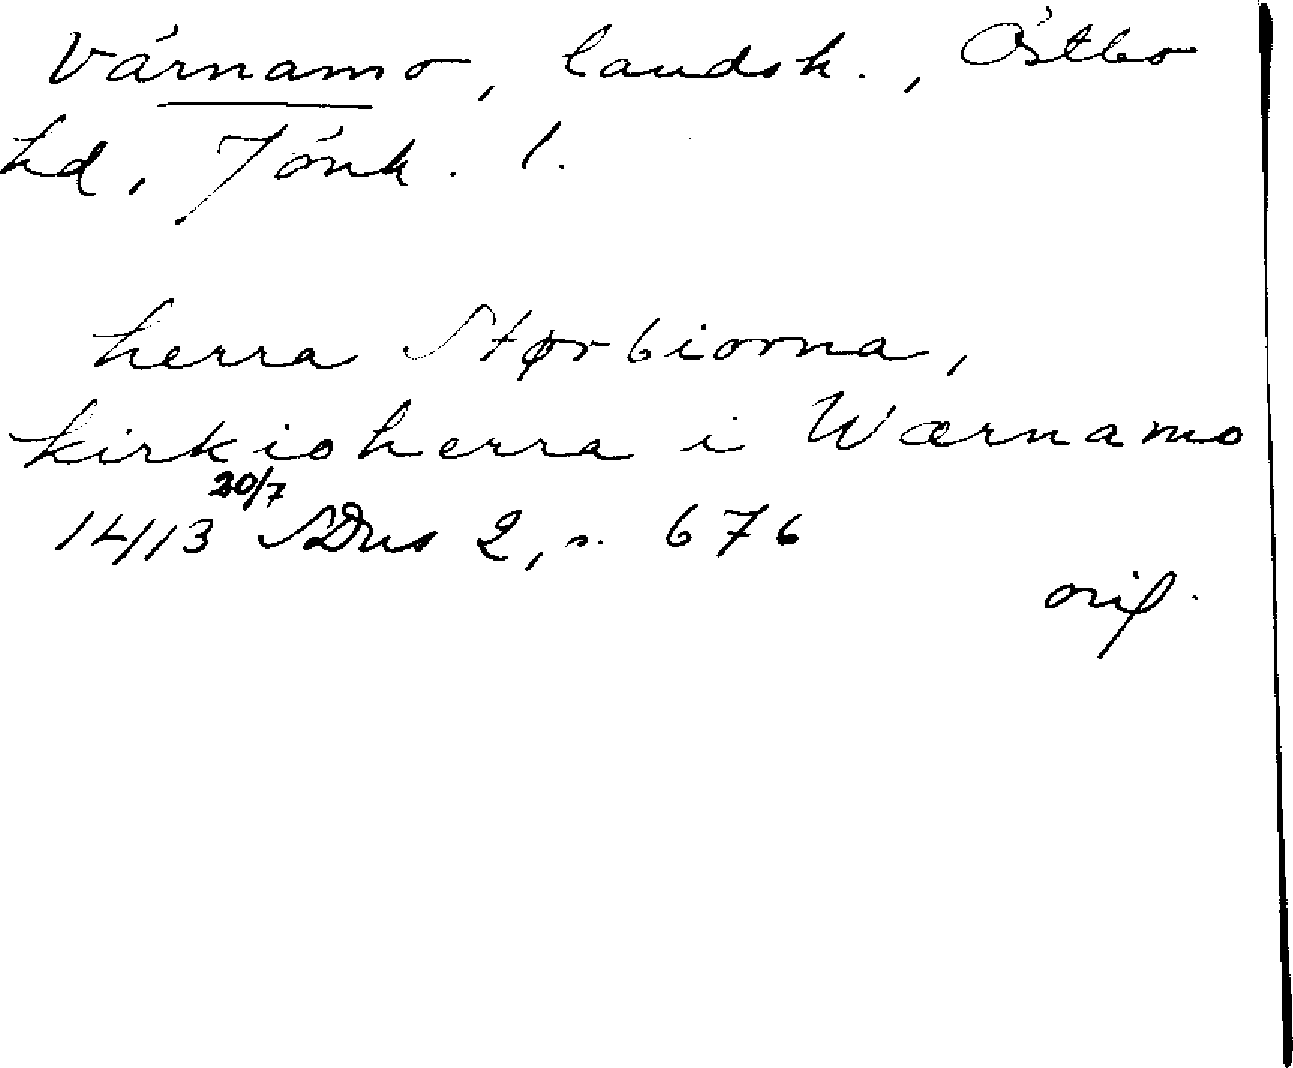 Värnamo, landsk., Östbo
hd, Jönk. l.
herra Størbiorna,
kirkioherra i Wærnamo
1413 20/7 SDns 2, s. 676
orig.